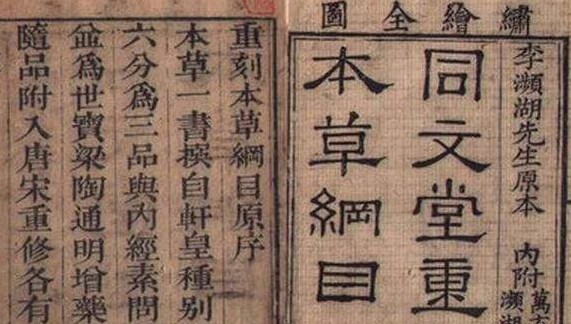 繡繪全圖
李瀕湖先生原本 內附
萬
瀕湖
同文堂重
本草綱目
重刻本草綱目原序
本草一書撰自軒皇種別
六分爲三品與內經素問
並爲世寶梁陶通明增藥
隨品附入唐宋重修各有